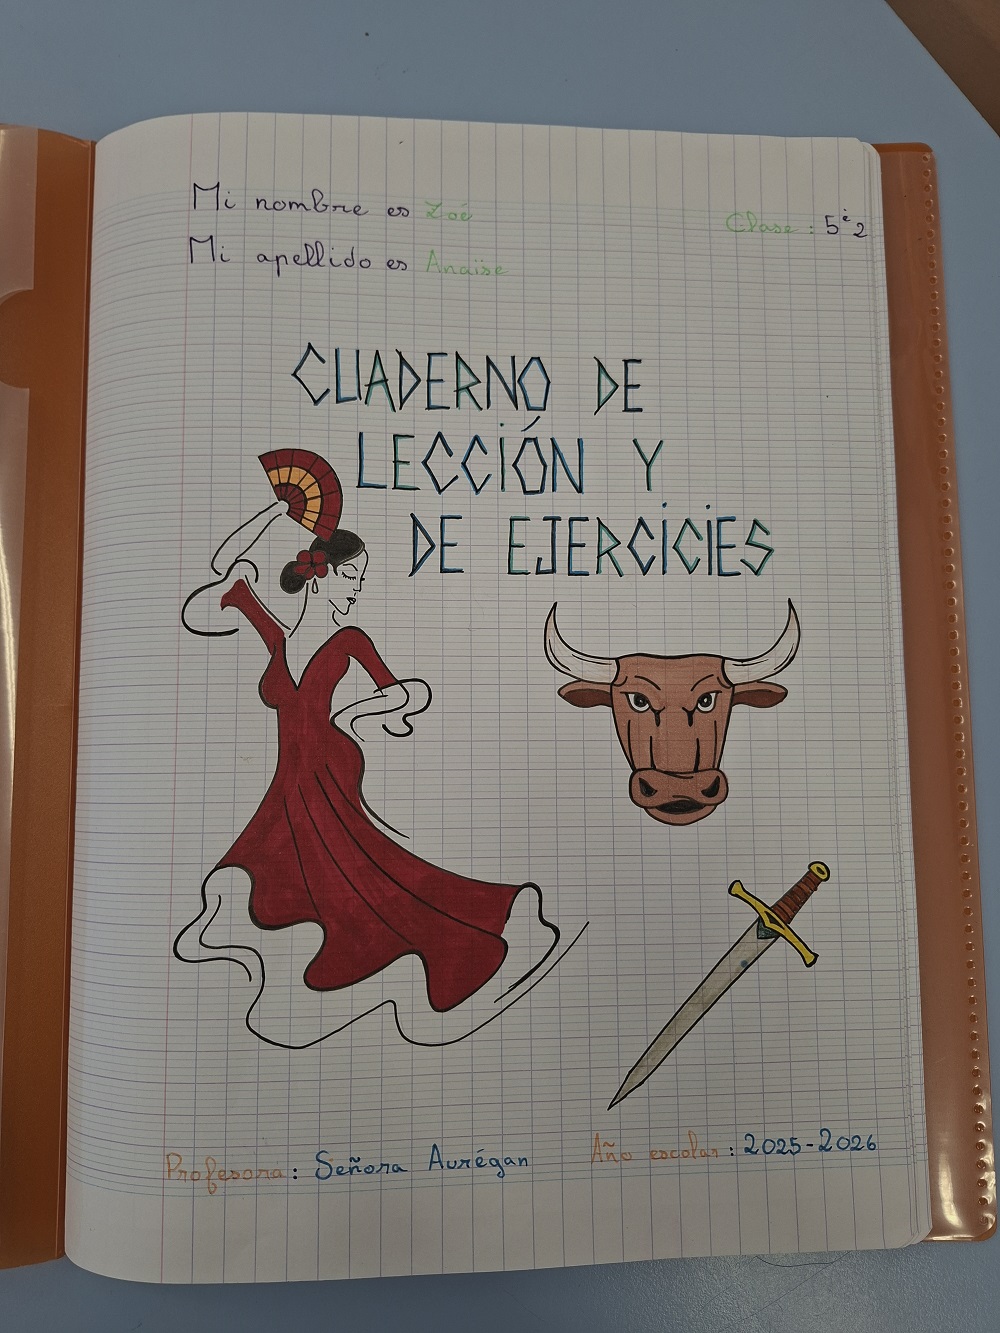 Mi nombre es Zoé
Clase : 5è2
Mi apellido es Anaïse
CUADERNO DE
LECCIÓN Y
DE EJERCICIES
Profesora : Señora Aurégan
Año escolar : 2025-2026